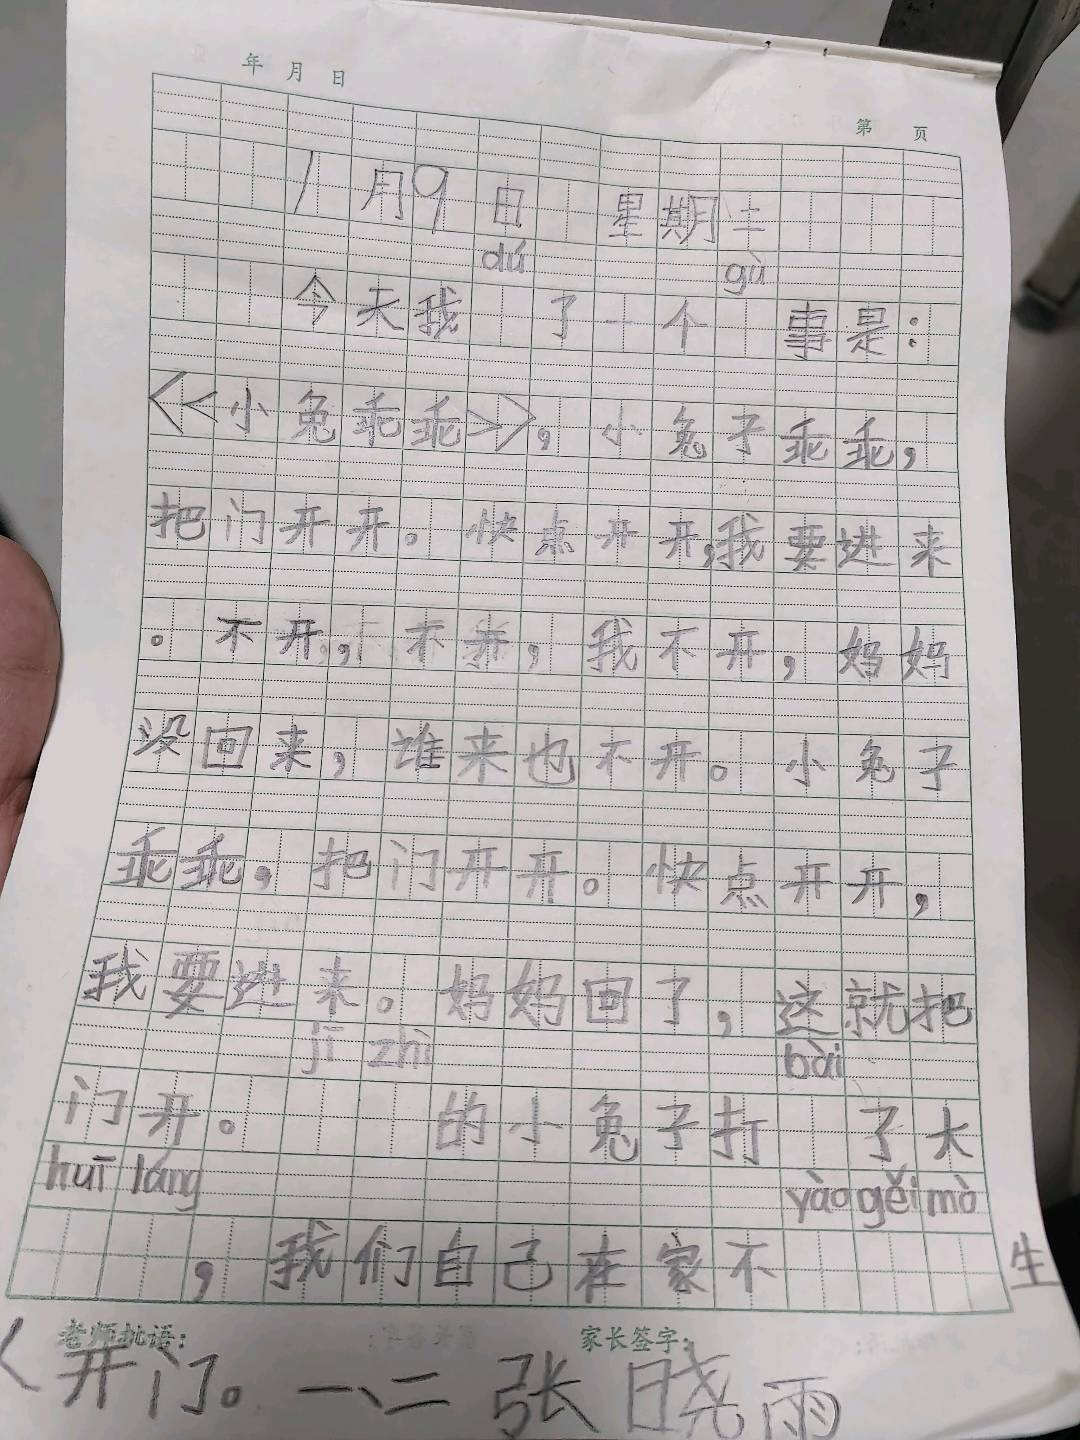 年 月 日
第 页
1月9日 星期士
dú gù
今天我 了一个 事是:
<<小兔乖乖>>,小兔子乖乖,
把门开开。快点开开,我要进来
。不开,不开,我不开,妈妈
没回来,谁来也不开。小兔子
乖乖,把门开开。快点开开,
我要进来。妈妈回了,这就把
jī zhì bài
门开。 的小兔子打 了大
huī láng yào gěi mò
,我们自己在家不 生
老师批语: 家长签字:
人开门。一、二 张晓雨